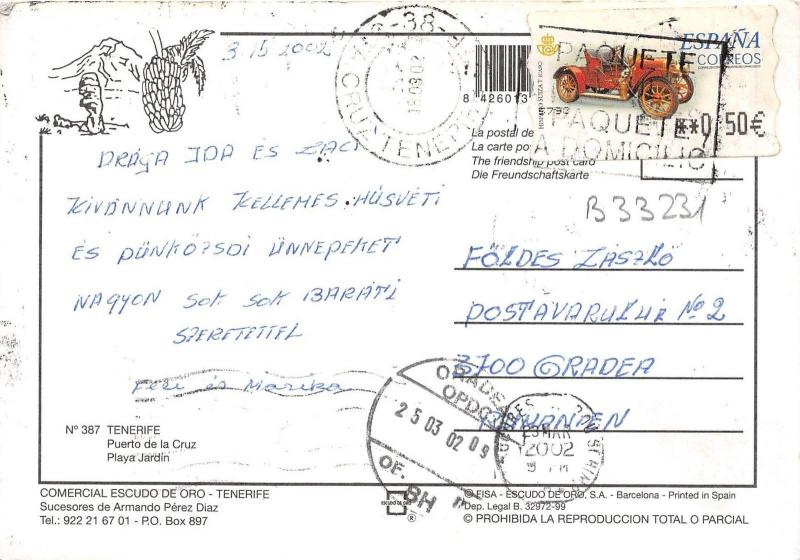 3 15 2002
DRÁGA IDA ÉS LACI
KIVÁNNUNK KELLEMES HÚSVÉTI
ÉS PÜNKÖZSDI ÜNNEPEKET
NAGYON SOK SOK BARÁTI
SZERETETTEL
Feri és Mariska
Nº 387 TENERIFE
Puerto de la Cruz
Playa Jardín
COMERCIAL ESCUDO DE ORO - TENERIFE
Sucesores de Armando Pérez Diaz
Tel.: 922 21 67 01 - P.O. Box 897
-38-
CRUZ TENERIFE
8 426013
ESPAÑA
CORREOS
HISPANO SUIZA T ICART
**0,50€
PAQUETE
PAQUETE
A DOMICILIO
La postal de
La carte po
The friendship post card
Die Freundschaftskarte
B33231
FÖLDES LÁSZLÓ
POSTAVARULUI Nº 2
3700 ORADEA
ROMÁNIEN
ORADEA
25 03 02 09
OF. BH
23 MAR
2002
ESCUDO DE ORO
®
© FISA - ESCUDO DE ORO, S.A. - Barcelona - Printed in Spain
Dep. Legal B. 32972-99
© PROHIBIDA LA REPRODUCCION TOTAL O PARCIAL